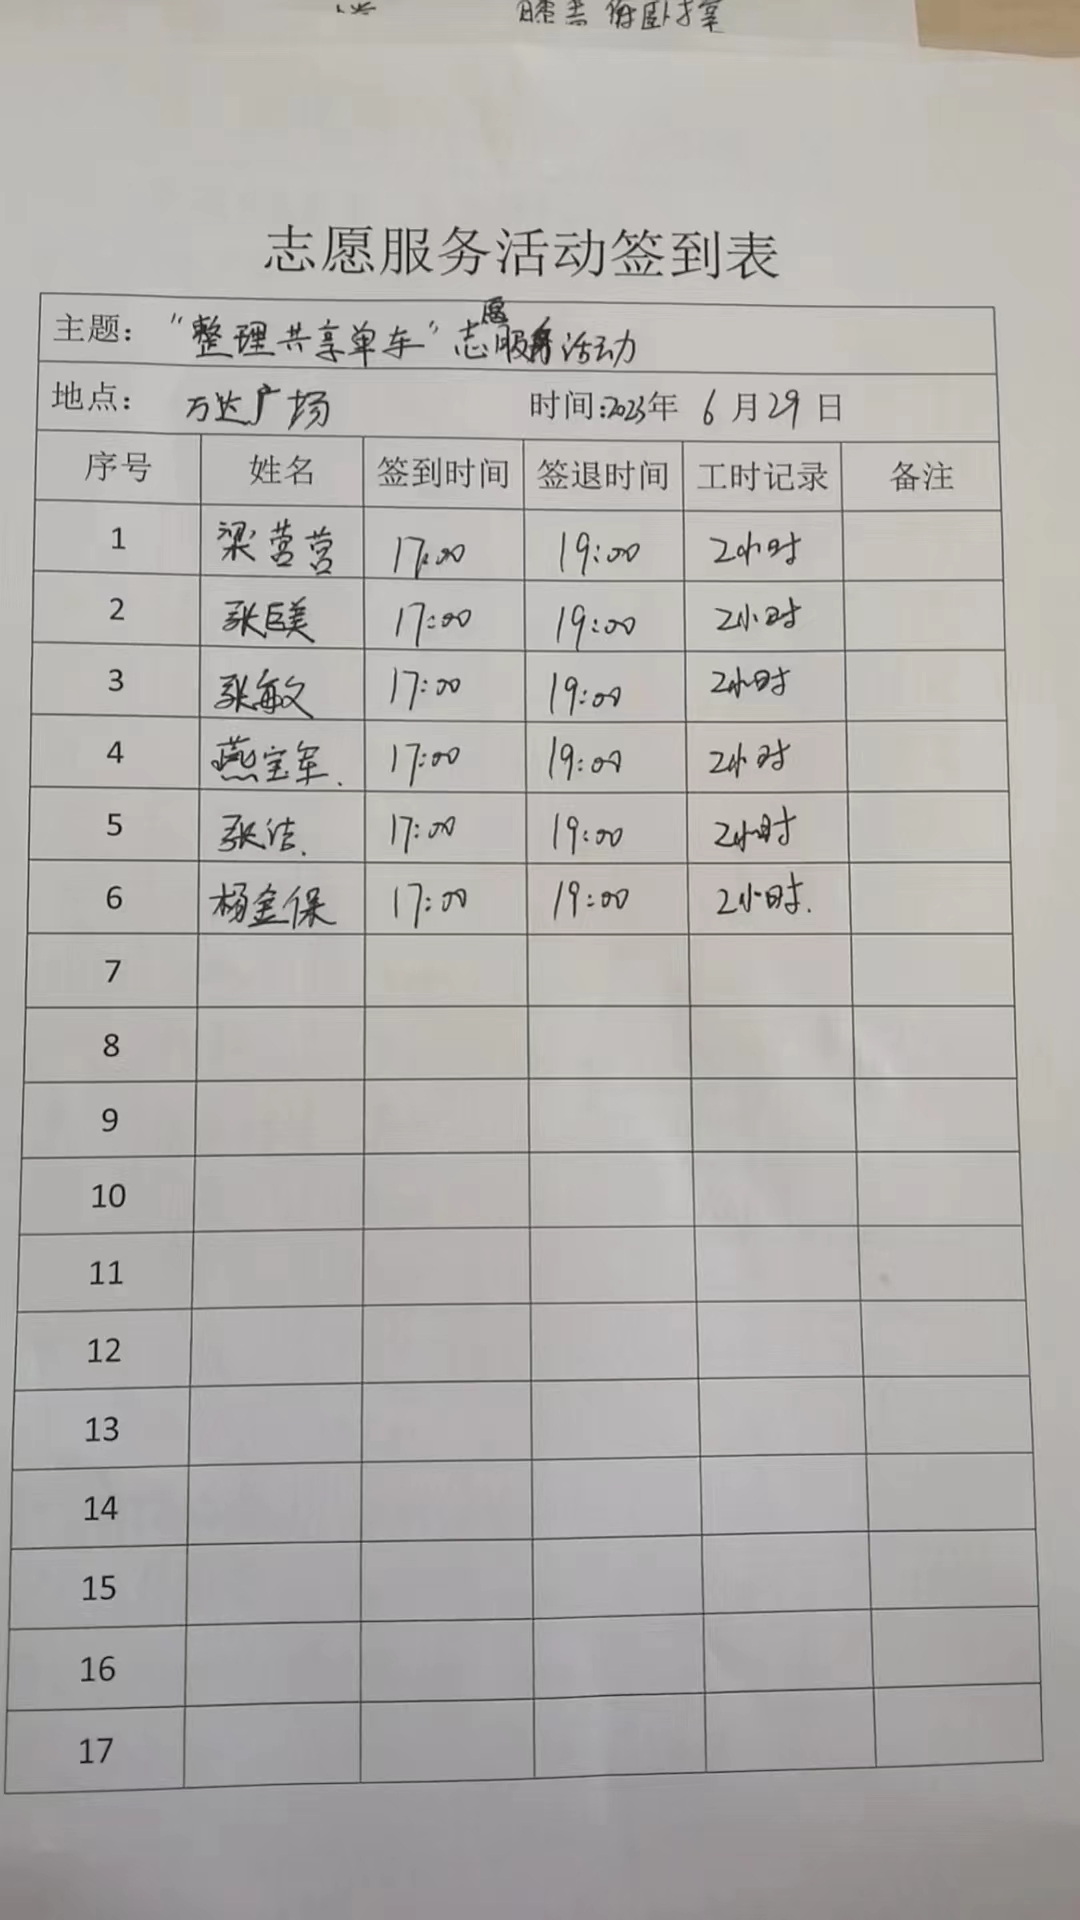 志愿服务活动签到表
主题：“整理共享单车”志愿服务活动
地点：万达广场 时间:2023年 6月29日
序号 姓名 签到时间 签退时间 工时记录 备注
1 梁营营 17:00 19:00 2小时
2 张巨美 17:00 19:00 2小时
3 张敏 17:00 19:00 2小时
4 燕宝军. 17:00 19:00 2小时
5 张洁. 17:00 19:00 2小时
6 杨金保 17:00 19:00 2小时.
7
8
9
10
11
12
13
14
15
16
17